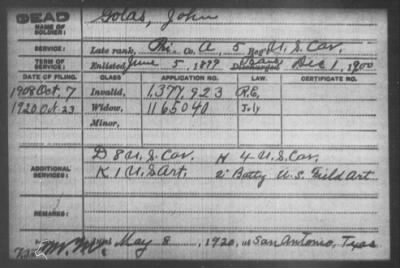 DEAD
NAME OF SOLDIER: Golas, John
SERVICE: Late rank, Co. A, 5 Reg't U.S. Cav.
TERM OF SERVICE: Enlisted June 5, 1899 Discharged Dec 1, 1900
DATE OF FILING. CLASS APPLICATION NO. LAW. CERTIFICATE NO.
1908 Oct. 7 Invalid, 1,377,923 R.E.
1920 Oct. 23 Widow, 1165040 July
Minor,
ADDITIONAL SERVICES: D 8 U.S. Cav. H 4 U.S. Cav.
K 1 U.S. Art. 2" Batty U.S. Field Art
REMARKS:
May 8, 1920, at San Antonio, Texas